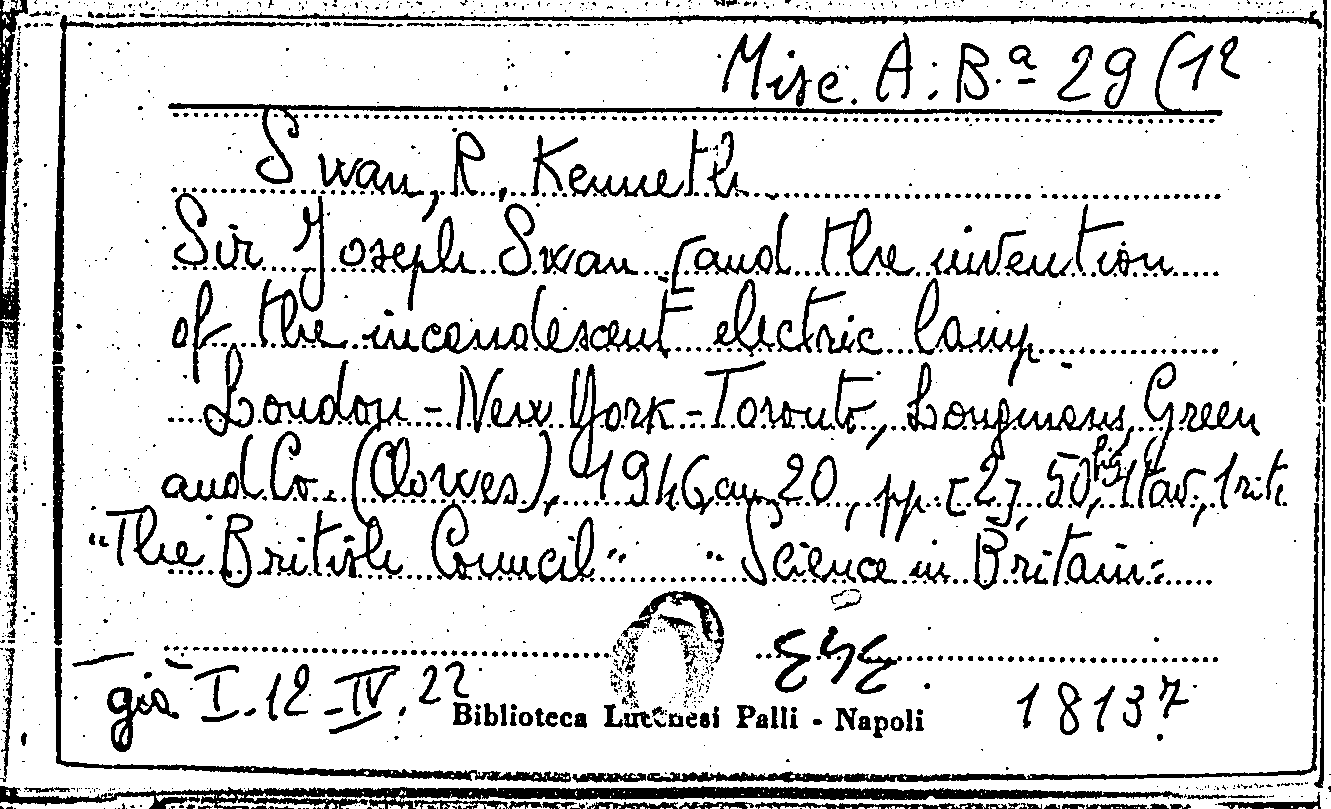 Misc. A. B.ª 29 (12
Swan, R. Kenneth
Sir Joseph Swan [and the invention
of the incandescent electric lamp.
London - New York - Toronto, Longmans, Green
and Co. (Clowes), 1946, 20, pp. [2], 50, fig., 1 tav., 1 ritr.
"The British Council" "Science in Britain"
già I. 12 - IV. 22
18137
Biblioteca Lucchesi Palli - Napoli